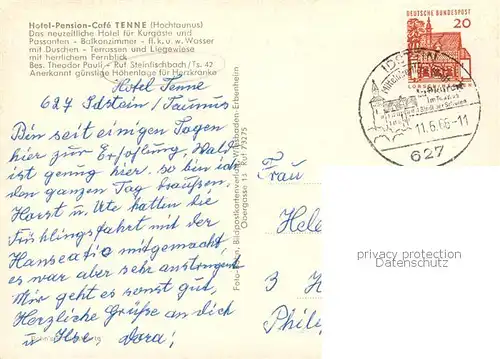 Hotel-Pension-Café TENNE (Hochtaunus)
Das neuzeitliche Hotel für Kurgäste und
Passanten - Balkonzimmer - fl. k. u. w. Wasser
mit Duschen - Terrassen und Liegewiese
mit herrlichem Fernblick
Bes. Theodor Pauli - Ruf Steinfischbach/Ts. 42
Anerkannt günstige Höhenlage für Herzkranke
Hotel Tenne
627 Idstein/Taunus
Bin seit einigen Tagen
hier zur Erholung, Wald
ist genug hier. so bin ich
den ganzen Tag draußen.
Horst u. Ute hatten die
Frühlingsfahrt mit der
Hanseatic mitgemacht,
es war aber sehr anstrengend
Mir geht es sonst gut,
Herzliche Grüße an dich
u Ilse Dora!
Bildpostkartenverlag, Wiesbaden-Erbenheim
Obergasse 13 Ruf 73275
DEUTSCHE BUNDESPOST
20
LORSCH
IDSTEIN
im Taunus
11.6.66-11
627
Frau
Hele
3 H
Phili
privacy protection
Datenschutz